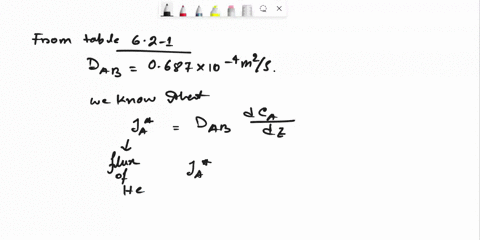 From table 6.2-1
D_AB = 0.687 × 10^-4 m²/s.
we know that
J_A* = D_AB dC_A/dz
↓
flux
of J_A*
He